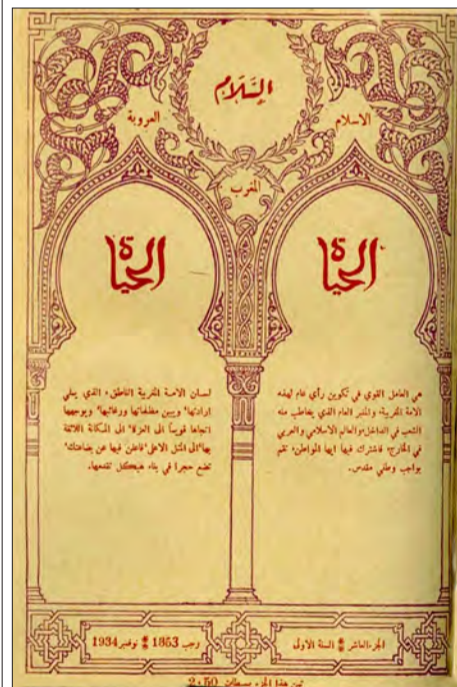 السَّلَام
الاسلام
العروبة
المغرب
الحياة
الحياة
هي العامل القوي في تكوين رأي عام لهذه
الامة المغربية، والمنبر العام الذي يخاطب منه
الشعب في الداخل، والعالم الاسلامي والعربي
في الخارج، فاشترك فيها ايها المواطن، تقم
بواجب وطني مقدس.
لسان الامة المغربية الناطق، الذي يملي
ارادتها، ويبين مطالباتها ورغباتها، ويوجهها
اتجاها قويا الى العزة، الى المكانة اللائقة
بها، الى المثل الاعلى، فاعلن فيها عن بضاعتك،
تضع حجرا في بناء هيكل تقدمها.
الجزء العاشر السنة الاولى
رجب 1853 نوفمبر 1934
ثمن هذا الجزء بسيطات 2،50